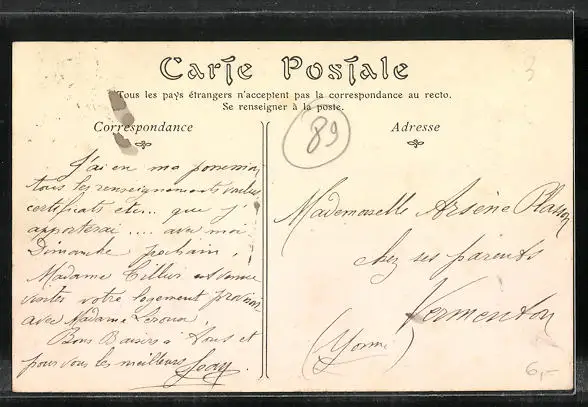 Carte Postale
Tous les pays étrangers n'acceptent pas la correspondance au recto.
Se renseigner à la poste.
Correspondance
Adresse
J'ai en ma possession
tous les renseignements voulus
certificats etc... que j'
apporterai .... avec moi
Dimanche prochain.
Madame est venue
visiter votre logement
avec Madame Leroux.
Bons Baisers à tous et
pour vous les meilleurs
Mademoiselle Arsène
chez ses parents
Vermenton
(Yonne)
89
3
6,-